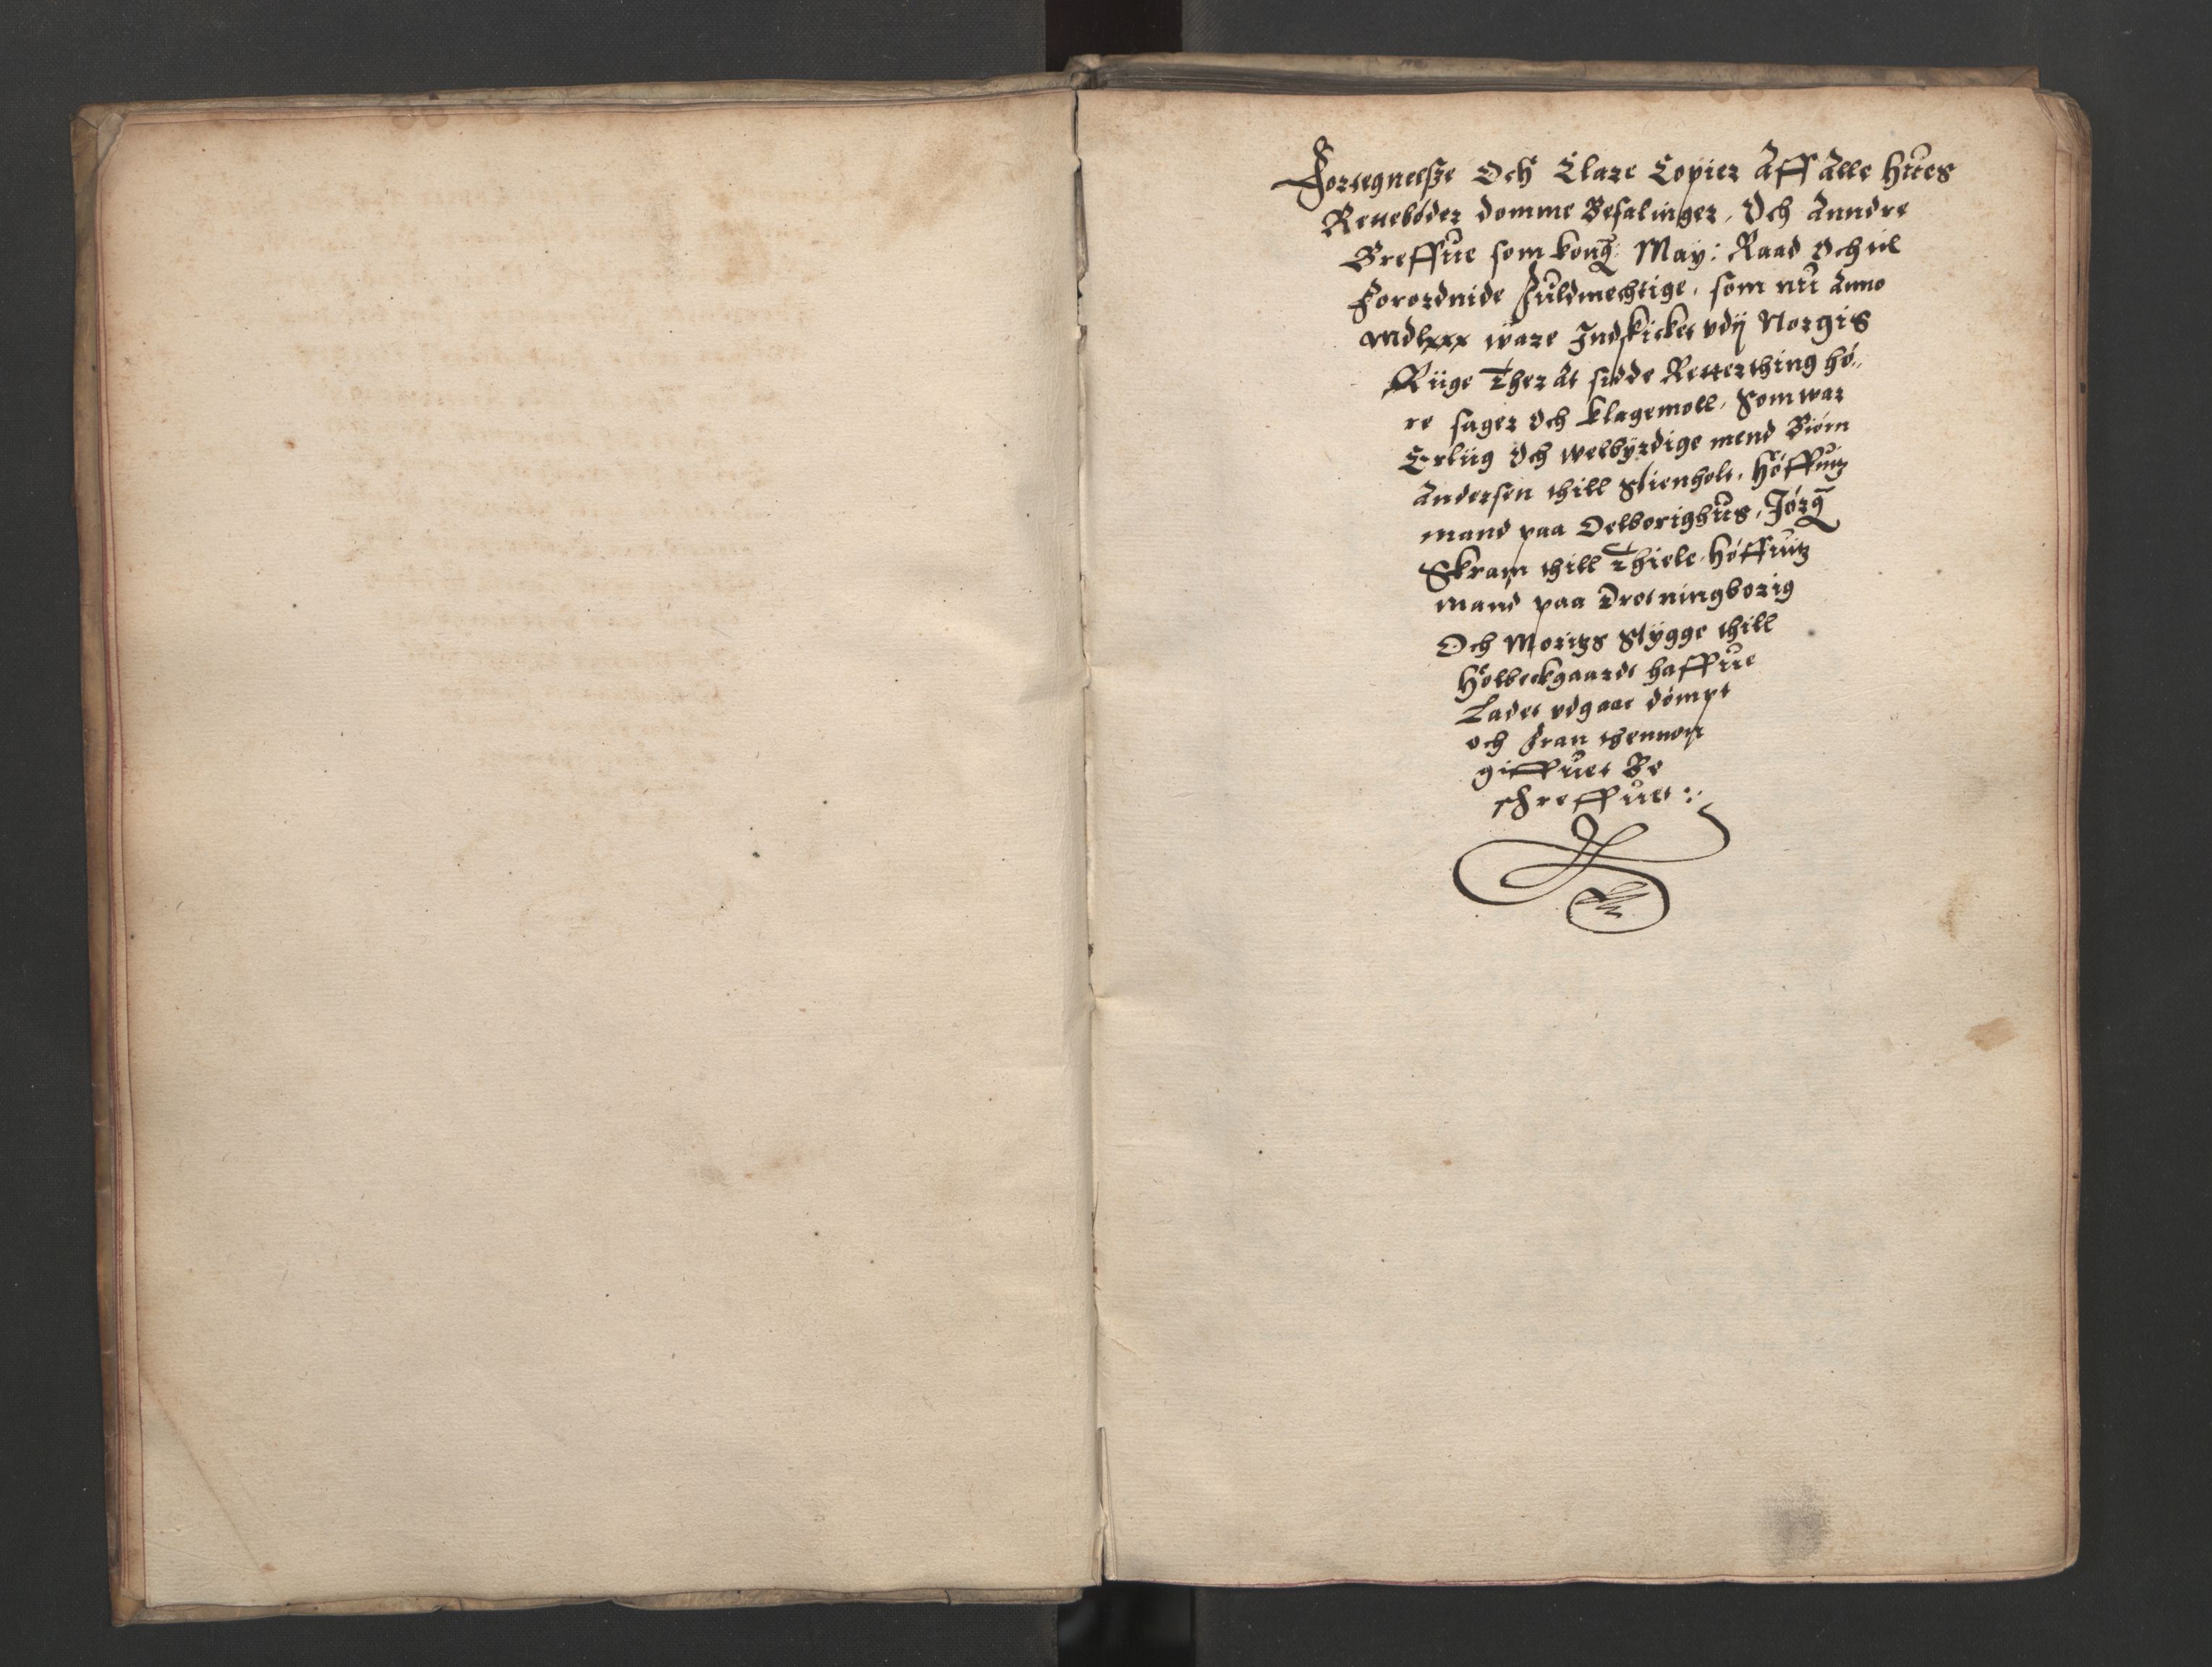 Fortegnelsze Och Clare Copier Aff Alle hues
Retteböder domme Befalinger, Och Anndre
Breffue som kong: May: Raad Och til
Forordnide Fuldmechtige, som nu Anno
mdlxxx ware Indskicket vdij Norgis
Riige Ther At sidde Retterthing hö„
re sager Och klagemoll, Som war
Erliig Och welbÿrdige mend Biörn
Andersen thill Stienholt, Höffuitz
mand paa Oelborighus, Jörg
Skram thill Thiele, Höffuitz
mand paa Drotningborig
Och Moritzs Stÿgge thill
Holbeckgaardt haffue
Ladet vdgaae dömpt
och fran thennom
giffuet Be
schreffuet :,